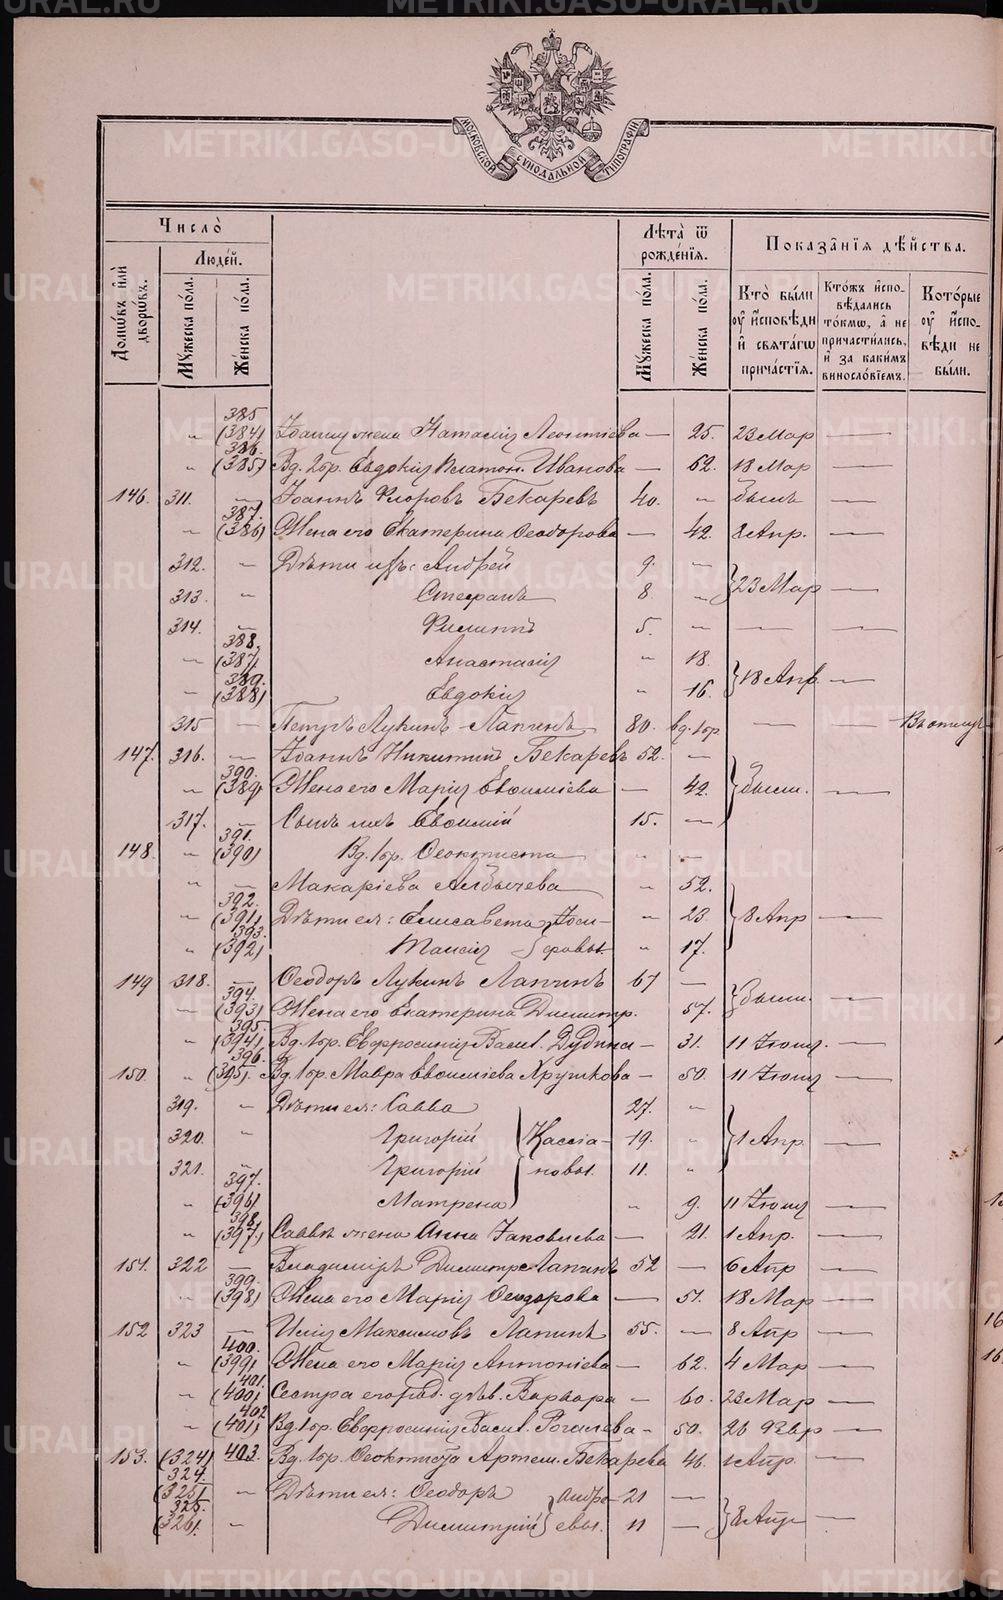 МОСКОВСКОЙ СѴНОДАЛЬНОЙ ТИПОГРАФІИ
Число̀
Домѡ́въ и҆лѝ дворѡ́въ.
Люде́й.
Мꙋ́жеска по́ла.
Же́нска по́ла.
Лѣ̑та̀ ѿ рожде́нїѧ.
Мꙋ́жеска по́ла.
Же́нска по́ла.
Показа̑нїѧ дѣ́йства.
Кто̀ бы́ли ᲂу҆ и҆́сповѣди и҆ свѧта́гѡ прича́стїѧ.
Кто́жъ и҆спо-вѣ́дались то́кмѡ, а҆ не причасти́лись, и҆ за каки́мъ винословїемъ.
Кото́рые ᲂу҆ и҆́спо-вѣди не бы́ли.
„ 385 (384) Іоанну жена Наталія Леонтіева — 25. 23 Мар —
„ 386. (385) Вд. 2бр. Евдокія Платон. Иванова — 62. 18 Мар —
146. 311. — Іоаннъ Флоровъ Бекаревъ 40. „ —
„ 387. (386) Жена его Екатерина Ѳеодорова — 42. 8 Апр. —
312. — Дѣти ихъ: Андрей 9. —
313. — Стефанъ 8 „ } 23 Мар —
314. — Филиппъ 5. „ — — —
„ 388. (387) Анастасія „ 18.
„ 389. (388) Евдокія „ 16. } 18 Апр. —
315 — Петръ Лукинъ Лапинъ 80. вд. 1бр — —
147. 316. — Іоаннъ Никитинъ Бекаревъ 52. —
„ 390. (389) Жена его Марія Евѳиміева — 42. —
317. — Сынъ ихъ Евѳимій 15. —
148. „ 391. (390) Вд. 1бр. Ѳеоктиста „ „
„ — Макаріева „ 52.
„ 392. (391) Дѣти ея: Елисавета „ 23 } 8 Апр —
„ 393. (392) Таисія „ 17.
149 318. — Ѳеодоръ Лукинъ Лапинъ 67 —
„ 394. (393) Жена его Екатерина Димитр. 57. —
„ 395. (394) Вд. 1бр. Евфросинія Васил. Дудина — 31. 11 Іюня. —
150. „ 396. (395). Вд. 1бр. Мавра Евѳиміева Хрушкова — 50. 11 Іюня —
319. — Дѣти ея: Савва 27. „
320. „ Григорій } Кассіа- 19. „ } 1 Апр. —
321. „ Григорій новы. 11. „
„ 397. (396) Матрена „ 9. 11 Іюня —
„ 398. (397) Саввѣ жена Анна Іаковлева — 21. 1 Апр. —
151. 322 — Владиміръ Димитр. Лапинъ 52 — 6 Апр —
„ 399. (398) Жена его Марія Ѳеодорова — 51. 18 Мар —
152 323 — Илія Максимовъ Лапинъ 55. — 8 Апр —
„ 400. (399) Жена его Марія Антоніева — 62. 4 Мар —
„ 401. (400) Сестра его род. дѣв. Варвара — 60. 23 Мар —
„ 402 (401) Вд. 1бр. Евфросинія Васил. — 50. 26 Февр —
153. (324) 403. Вд. 1бр. Ѳеоктиста Артем. Бекарева 46. 1 Апр. —
324. (325) — Дѣти ея: Ѳеодоръ } Андре- 21 —
325. (326). — Димитрій евы. 11 — } 8 Апр —